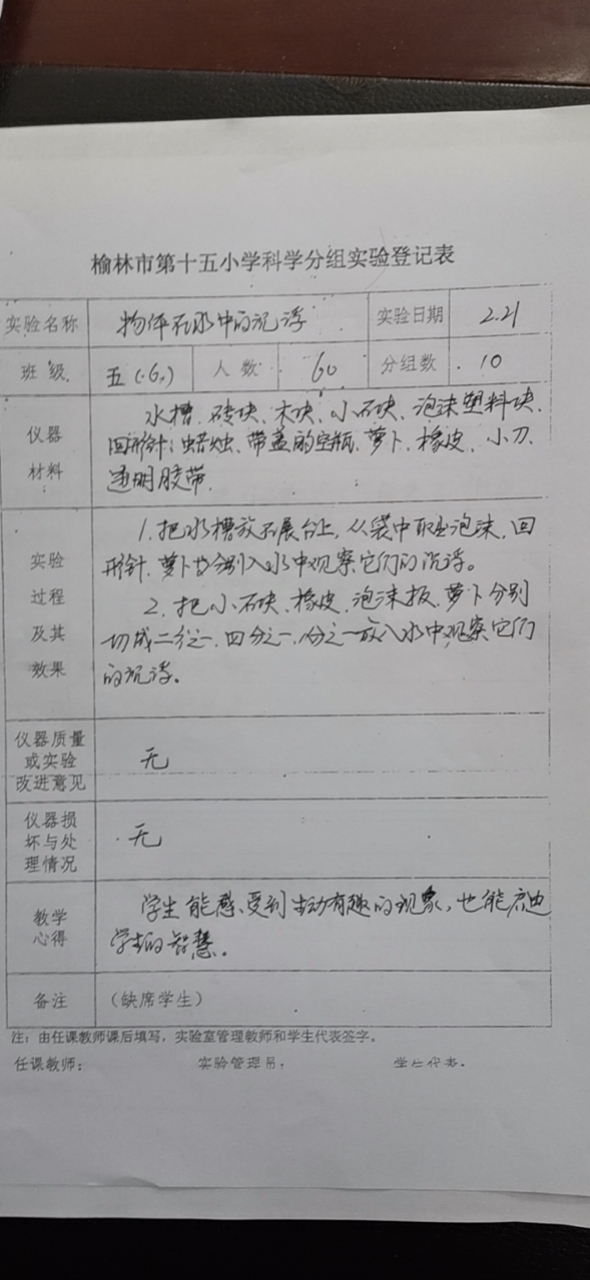 榆林市第十五小学科学分组实验登记表
实验名称 物体在水中的沉浮 实验日期 2.21
班级 五(6) 人数 60 分组数 10
仪器材料
水槽、砖块、木块、小石块、泡沫塑料块、
回形针、蜡烛、带盖的空瓶、萝卜、橡皮、小刀、
透明胶带.
实验过程及其效果
1.把水槽放在展台上,从袋中取出泡沫、回
形针、萝卜分别入水中观察它们的沉浮。
2.把小石块、橡皮、泡沫板、萝卜分别
切成二分之一、四分之一、八分之一放入水中观察它们
的沉浮。
仪器质量
或实验
改进意见
无
仪器损
坏与处
理情况
无
教学
心得
学生能感受到生动有趣的现象,也能启迪
学生的智慧。
备注 (缺席学生)
注:由任课教师课后填写,实验室管理教师和学生代表签字。
任课教师: 实验管理员: 学生代表: